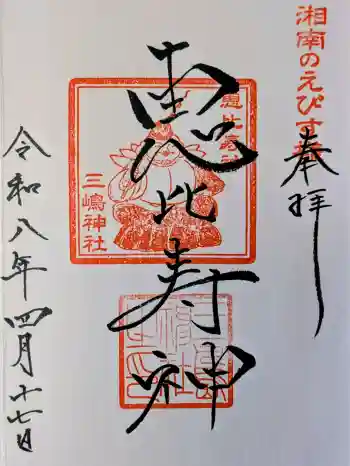 湘南のえびす
奉拝
恵比寿神
恵比寿神
三嶋神社
令和八年四月十七日